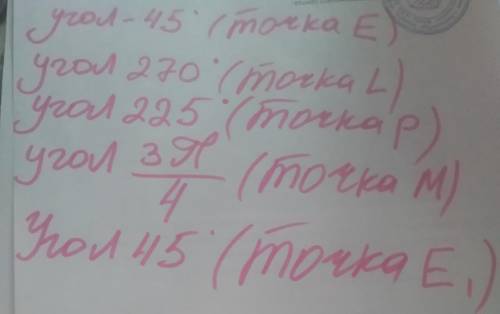 угол -45° (точка E)
угол 270° (точка L)
угол 225° (точка P)
угол 3П/4 (точка M)
Угол 45° (точка E₁)